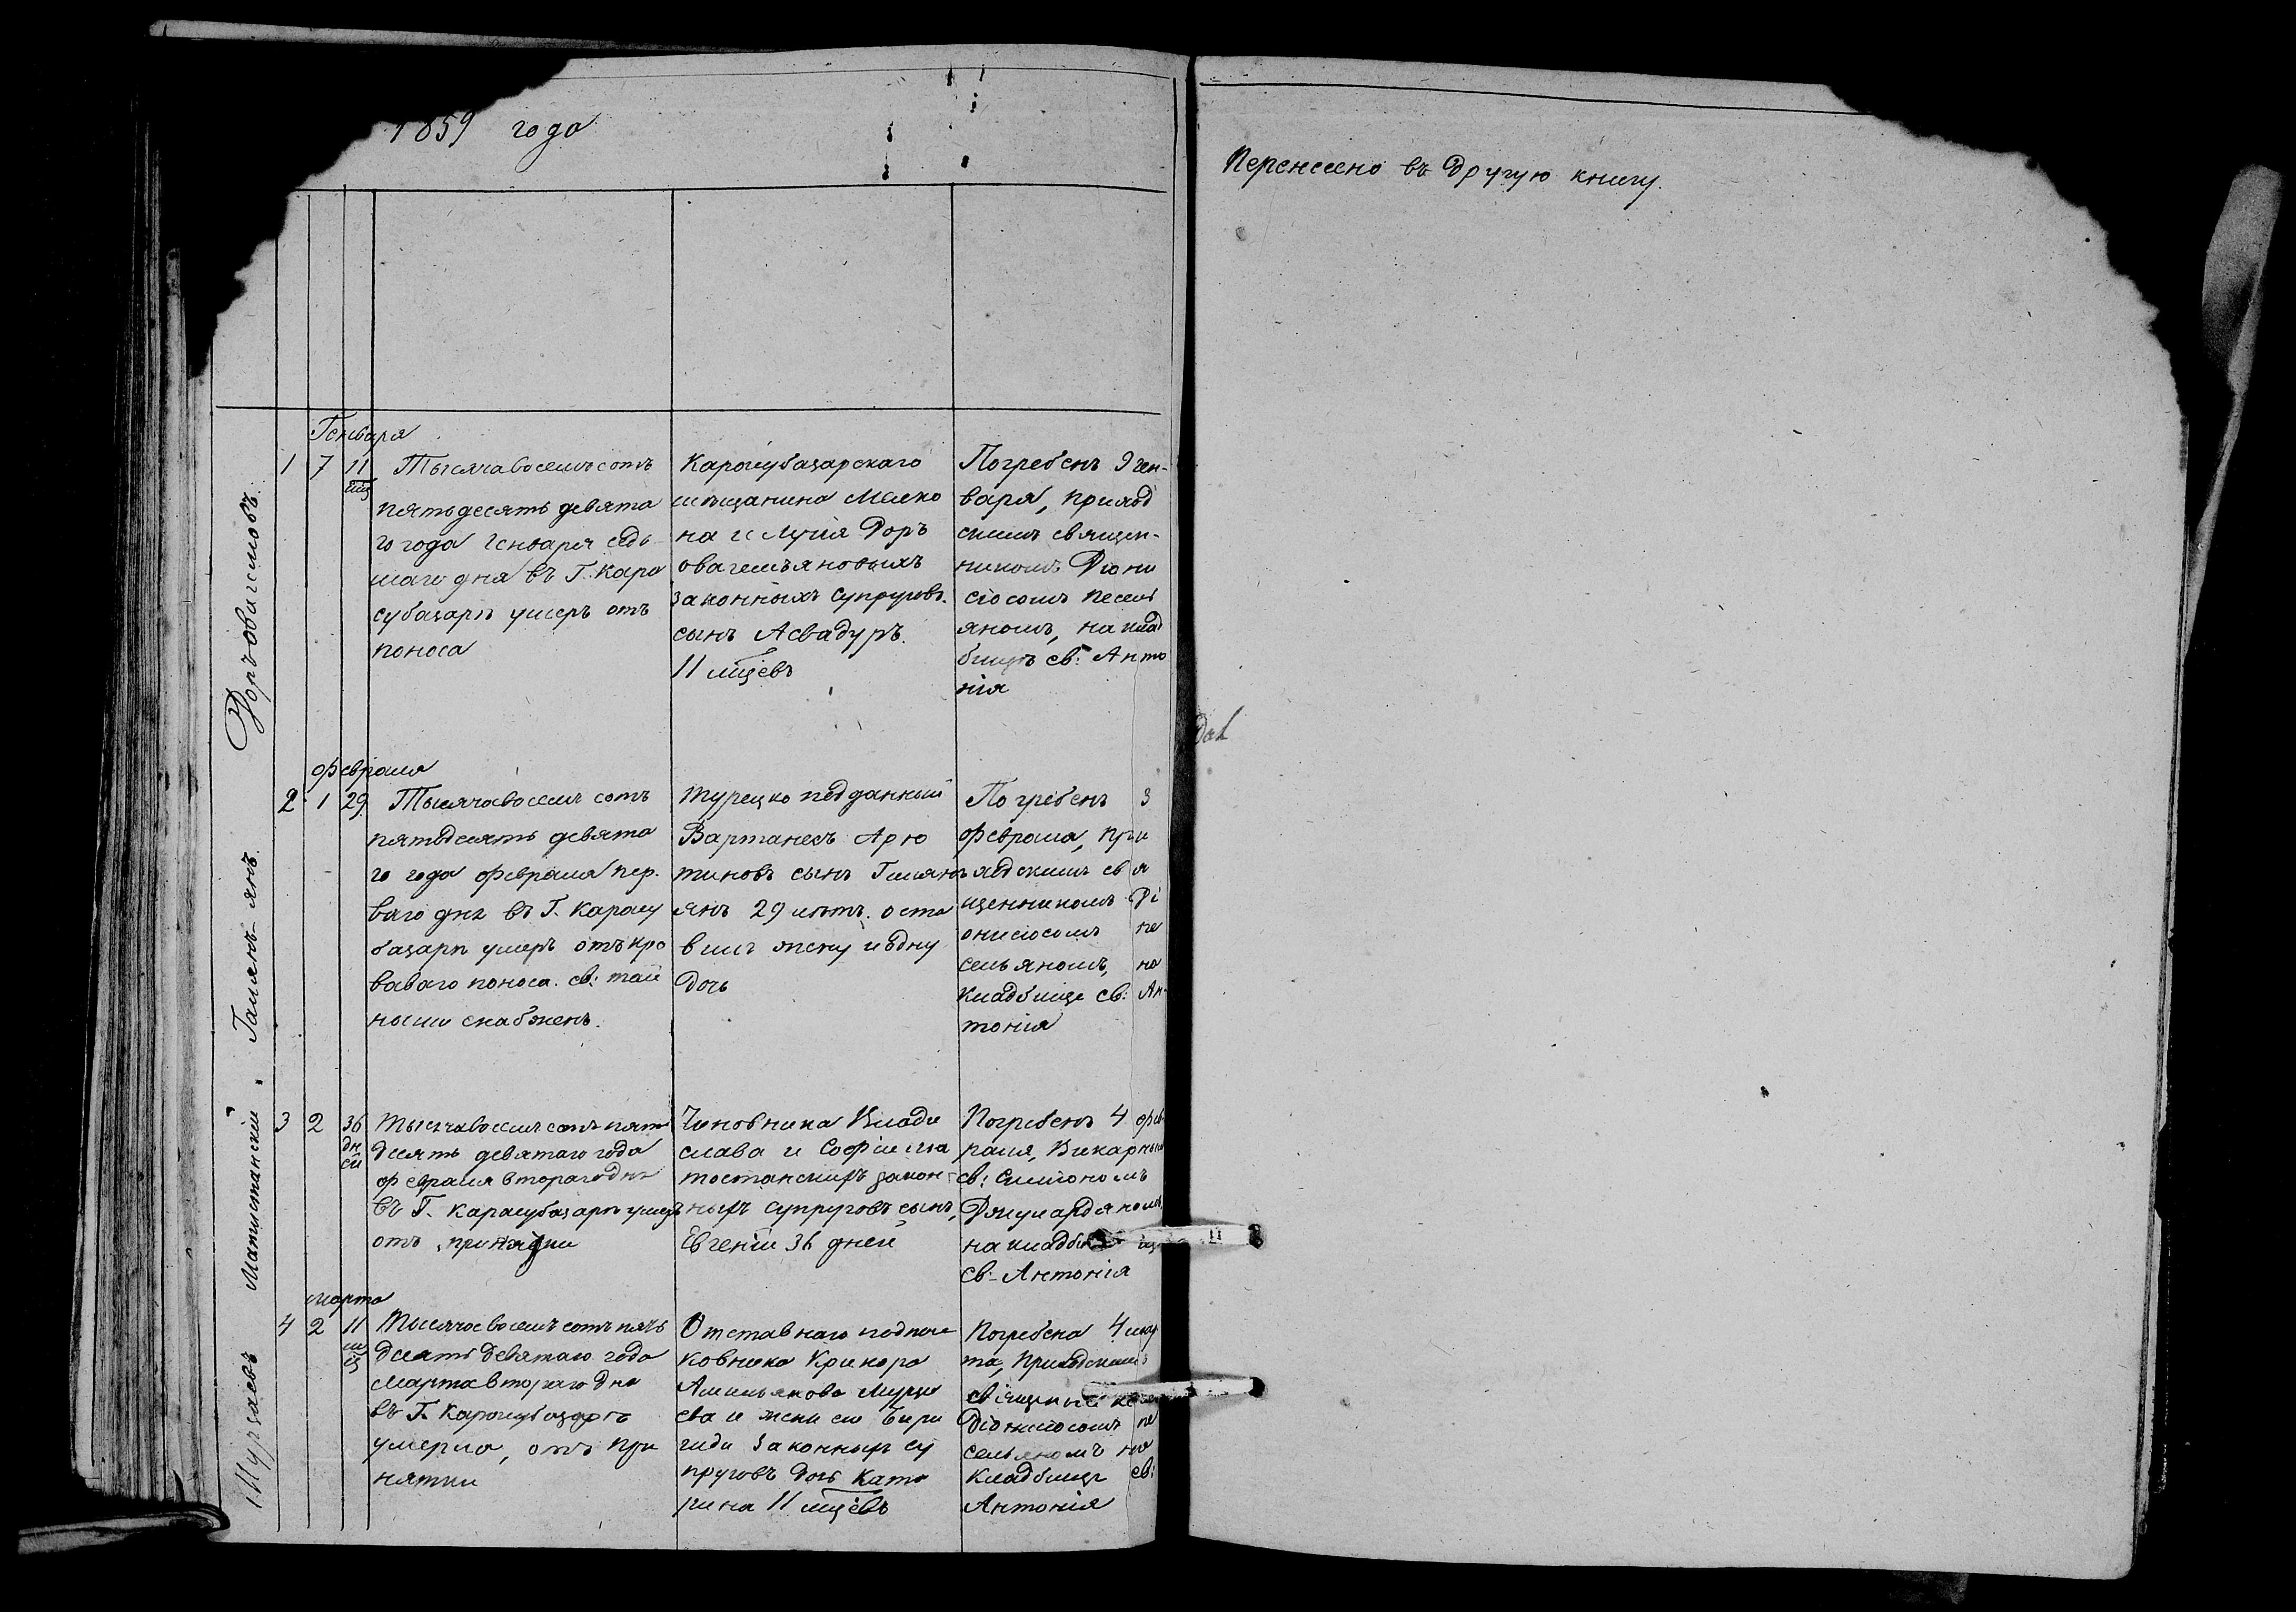 1859 года
Перенесено въ другую книгу.
Генваря
1 7 11 мц
Тысяча восемь сотъ
пятьдесятъ девята
го года Генваря седь
маго дня въ Г. Кара
субазарѣ умеръ отъ
поноса
Карасубазарскаго
мѣщанина
на и Луція Доръ
овагемьяновыхъ
законныхъ супруговъ.
сынъ Асвадуръ.
11 мцевъ
Погребенъ 9 ген-
варя, приход
скимъ священ-
никомъ Діони
сіосомъ Песель
яномъ, на клад
бищѣ св: Анто
нія
Февраля
2 1 29
Тысяча восемь сотъ
пятьдесятъ девята
го года февраля пер.
ваго дня въ Г. Карасу
базарѣ умеръ отъ кро
ваваго поноса. св: тай
ными снабженъ.
Турецко подданный
Вартанесъ Арю
тиновъ сынъ
янъ 29 лѣтъ. оста
вилъ жену и одну
дочь
Погребенъ 3
февраля, при
ходскимъ свя
щенникомъ Ді
онисіосомъ Пе
сельяномъ, на
кладбище св: Ан-
тонія
3 2 36 дн ей
Тысяча восемь сотъ пять
десятъ девятаго года
февраля втораго дня
въ Г. Карасубазарѣ умеръ
отъ принятки
Чиновника Влади
слава и Софіи Ма
тостанскихъ закон-
ныхъ супруговъ сынъ,
Евгеніи 36 дней
Погребенъ 4 фев-
раля, Викарнымъ
св: Симономъ
на кладби
св. Антонія
марта
4 2 11 мц
Тысяча восемь сотъ пять
десятъ девятаго года
марта втораго дня
въ Г. Карасубазарѣ
умерла, отъ при
нятки
Отставнаго подпол
ковника Крикора
Аминьянова Мурза
ева и жены его Бири
гиди законныхъ су
пруговъ дочь Ката
рина 11 мцевъ
Погребена 4 мар
та, Приходскимъ
Діонисіосомъ Пе
сельяномъ на
кладбищѣ св:
Антонія
Доръовагемовъ.
Мурзаевъ